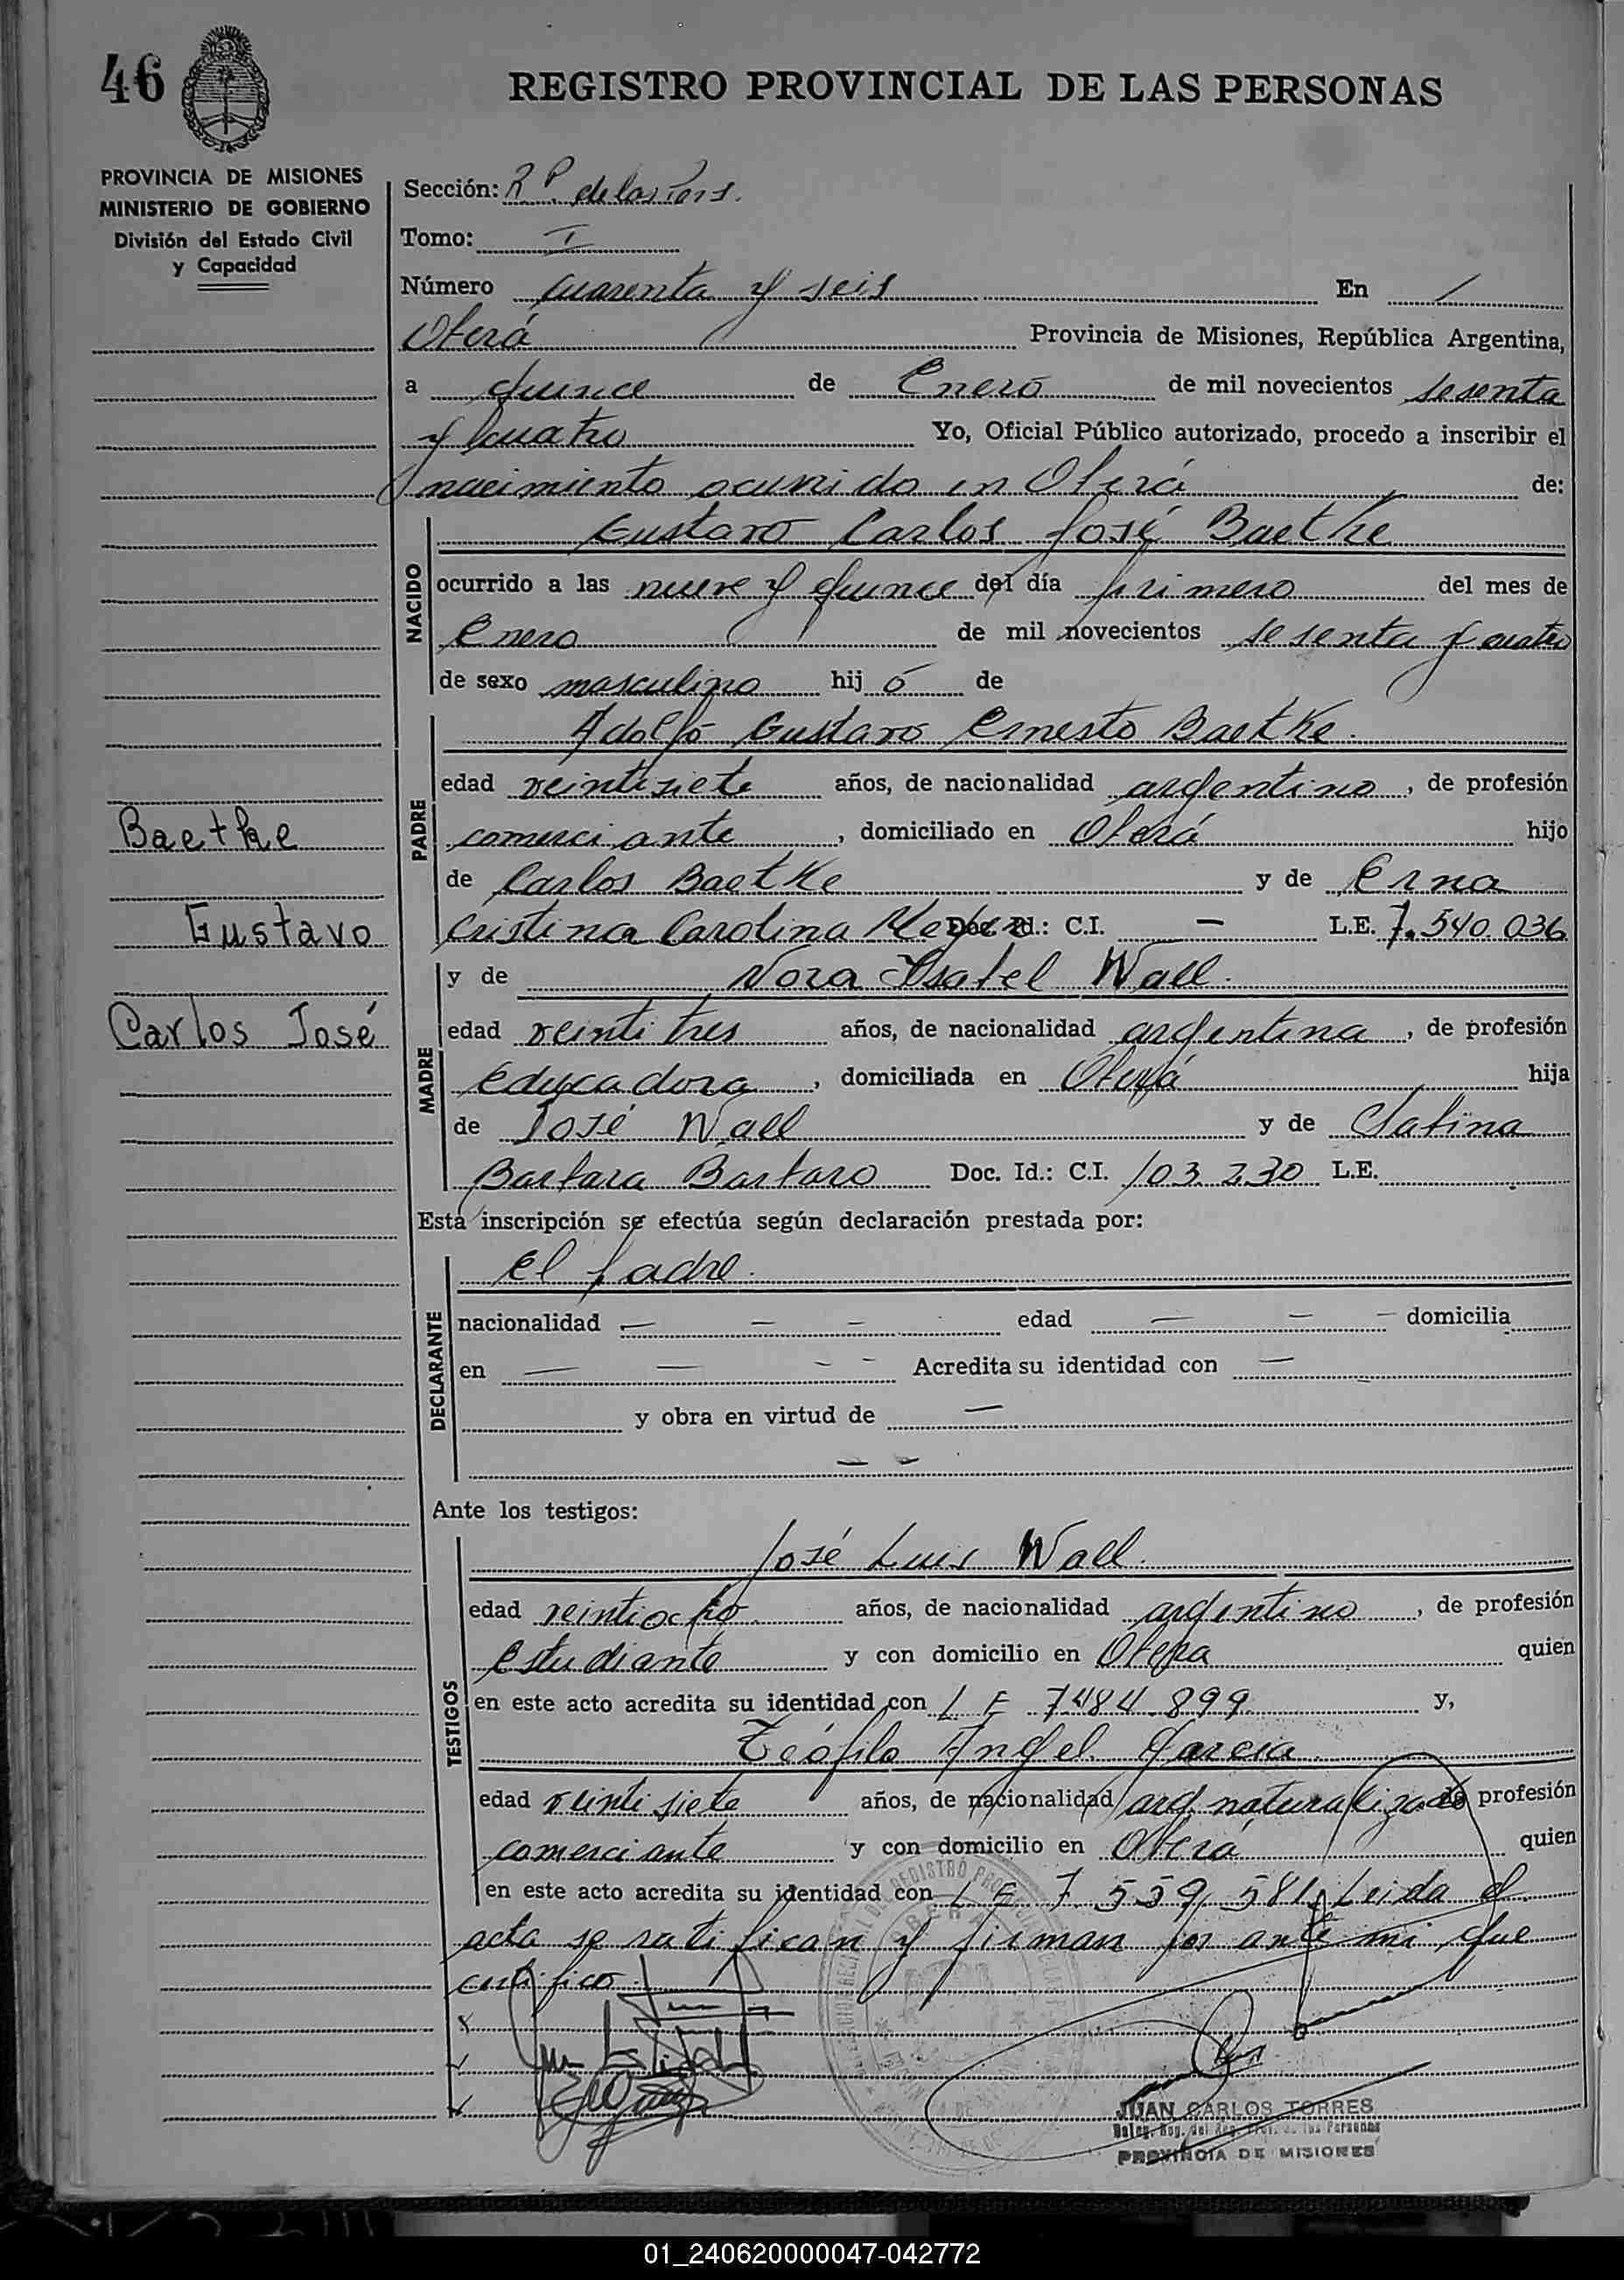 46
REGISTRO PROVINCIAL DE LAS PERSONAS
PROVINCIA DE MISIONES
MINISTERIO DE GOBIERNO
División del Estado Civil
y Capacidad
Sección: R P. de las Pers.
Tomo: I
Número cuarenta y seis En
Oberá Provincia de Misiones, República Argentina,
a quince de Enero de mil novecientos sesenta
y cuatro Yo, Oficial Público autorizado, procedo a inscribir el
nacimiento ocurrido en Oberá de:
NACIDO
Gustavo Carlos José Baetke
ocurrido a las nueve y quince del día primero del mes de
Enero de mil novecientos sesenta y cuatro
de sexo masculino hij o de
PADRE
Adolfo Gustavo Ernesto Baetke.
edad veintisiete años, de nacionalidad argentino, de profesión
comerciante, domiciliado en Oberá hijo
de Carlos Baetke y de Erna
Cristina Carolina Doc. Id.: C.I. — L.E. 7.540.036
Baetke
Gustavo
Carlos José
MADRE
y de Nora Isabel Wall.
edad veintitres años, de nacionalidad argentina, de profesión
educadora, domiciliada en Oberá hija
de José Wall y de
Barbara Barbaro Doc. Id.: C.I. 103.230 L.E.
Esta inscripción se efectúa según declaración prestada por:
DECLARANTE
el padre.
nacionalidad — — — edad — — — domicilia
en — — - - Acredita su identidad con —
y obra en virtud de —
— —
Ante los testigos:
TESTIGOS
José Luis Wall.
edad veintiocho años, de nacionalidad argentino, de profesión
estudiante y con domicilio en Obera quien
en este acto acredita su identidad con L E 7.484.899. y,
Teófilo Angel Garcia.
edad veintisiete años, de nacionalidad arg. naturalizado de profesión
comerciante y con domicilio en Oberá quien
en este acto acredita su identidad con L E 7.559.581. Leida el
acta se ratifican y firman por ante mi que
certifico.
JUAN CARLOS TORRES
Deleg. Reg. del Reg. Prov. de las Personas
PROVINCIA DE MISIONES
01_240620000047-042772